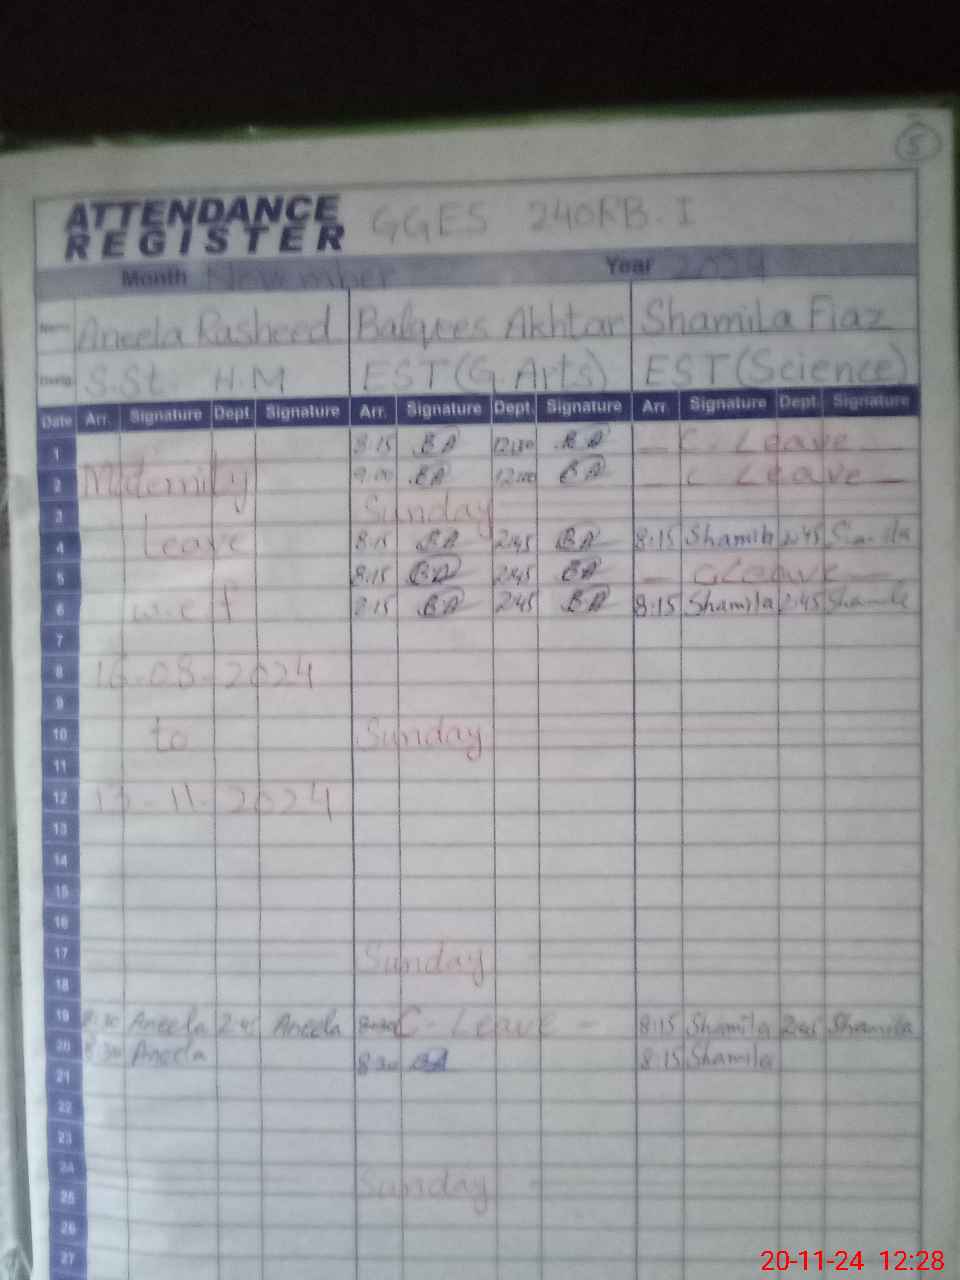 5
ATTENDANCE
REGISTER
GGES 240RB.I
Month November Year 2024
Name Aneela Rasheed Balqees Akhtar Shamila Fiaz
Desig. S.St. H.M EST(G.Arts) EST(Science)
Date Arr. Signature Dept. Signature Arr. Signature Dept. Signature Arr. Signature Dept. Signature
1 8:15 BA 12:30 BA - C-Leave -
2 Maternity 9:00 BA 12:00 BA - C Leave -
3 Sunday
4 Leave 8:15 BA 2:45 BA 8:15 Shamila 2:45 Shamila
5 8:15 BA 2:45 BA - C Leave -
6 w.e.f 8:15 BA 2:45 BA 8:15 Shamila 2:45 Shamila
7
8 16-08-2024
9
10 to Sunday
11
12 13-11-2024
13
14
15
16
17 Sunday
18
19 8:30 Aneela 2:45 Aneela C-Leave - 8:15 Shamila 2:45 Shamila
20 8:30 Aneela 8:30 BA 8:15 Shamila
21
22
23
24 Sunday
25
26
27
20-11-24 12:28